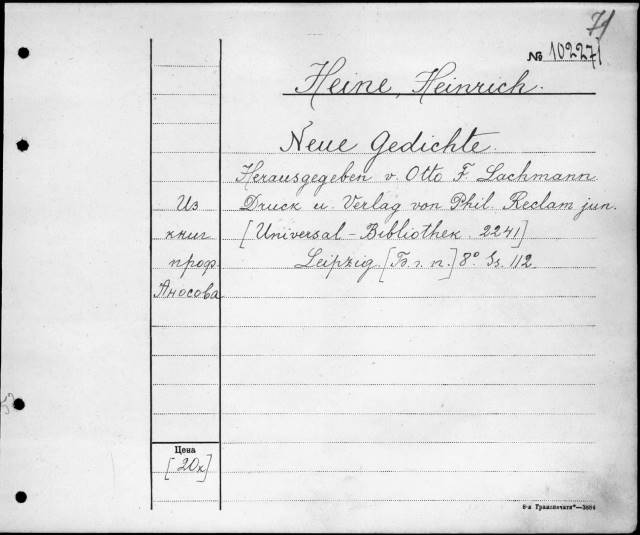 71
№ 10227
Heine, Heinrich.
Neue Gedichte.
Herausgegeben v. Otto F. Lachmann.
Из Druck u. Verlag von Phil. Reclam jun.
книг [Universal-Bibliothek. 2241]
проф. Leipzig. [Б. г. п.] 8° Ss. 112.
Аносова
53
Цена
[20к]
8-я Гранпечати"—3884